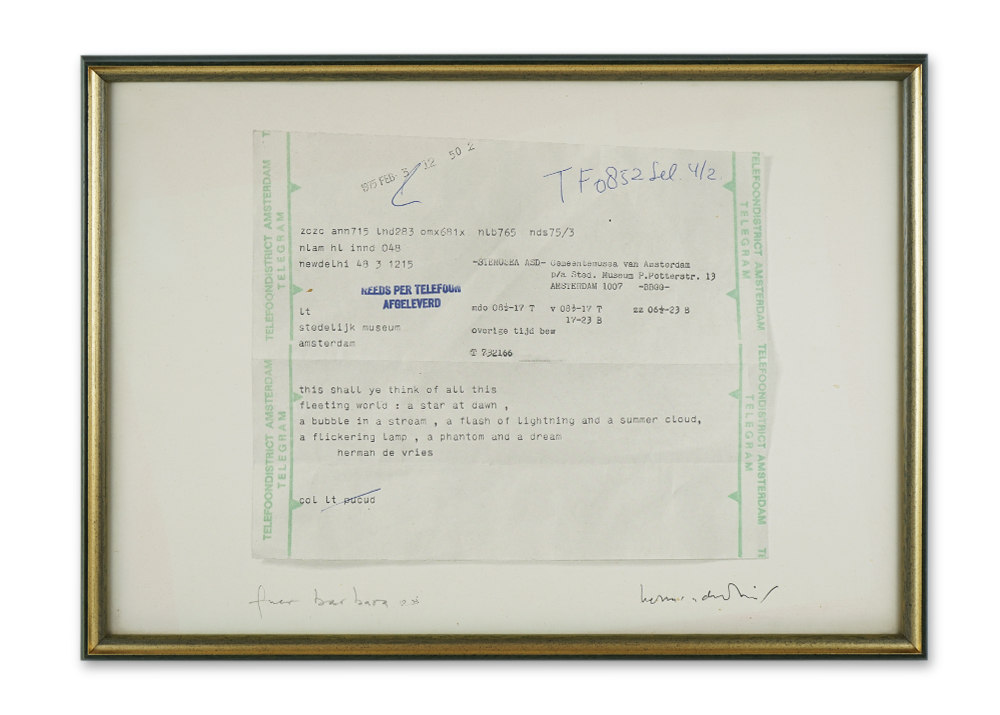 1975 FEB 3 12 50 2
TF0852 Sel 4/2
zczc ann715 lnd283 omx681x nlb765 nds75/3
nlam hl innd 048
newdelhi 48 3 1215
-STEMUSEA ASD- Gemeentemusea van Amsterdam
p/a Sted. Museum P.Potterstr. 13
AMSTERDAM 1007 -BB00-
REEDS PER TELEFOON
AFGELEVERD
mdo 08½-17 T v 08½-17 T zz 06½-23 B
17-23 B
overige tijd bew
T 732166
lt
stedelijk museum
amsterdam
this shall ye think of all this
fleeting world : a star at dawn ,
a bubble in a stream , a flash of lightning and a summer cloud,
a flickering lamp , a phantom and a dream
herman de vries
col lt pucud
TELEFOONDISTRICT AMSTERDAM
TELEGRAM
TELEFOONDISTRICT AMSTERDAM
TELEGRAM
TELEFOONDISTRICT AMSTERDAM
TELEGRAM
TELEFOONDISTRICT AMSTERDAM
TELEGRAM
fuer barbara
herman de vries